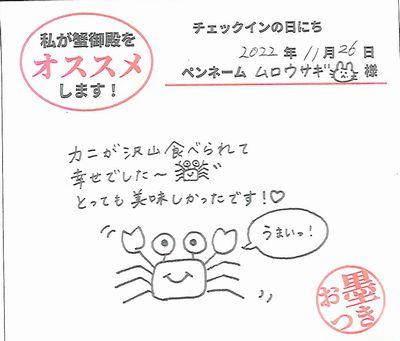 私が蟹御殿を
オススメ
します！
チェックインの日にち
2022年11月26日
ペンネーム ムロウサギ 様
カニが沢山食べられて
幸せでした〜
とっても美味しかったです！♡
うまいっ！
墨
おつき